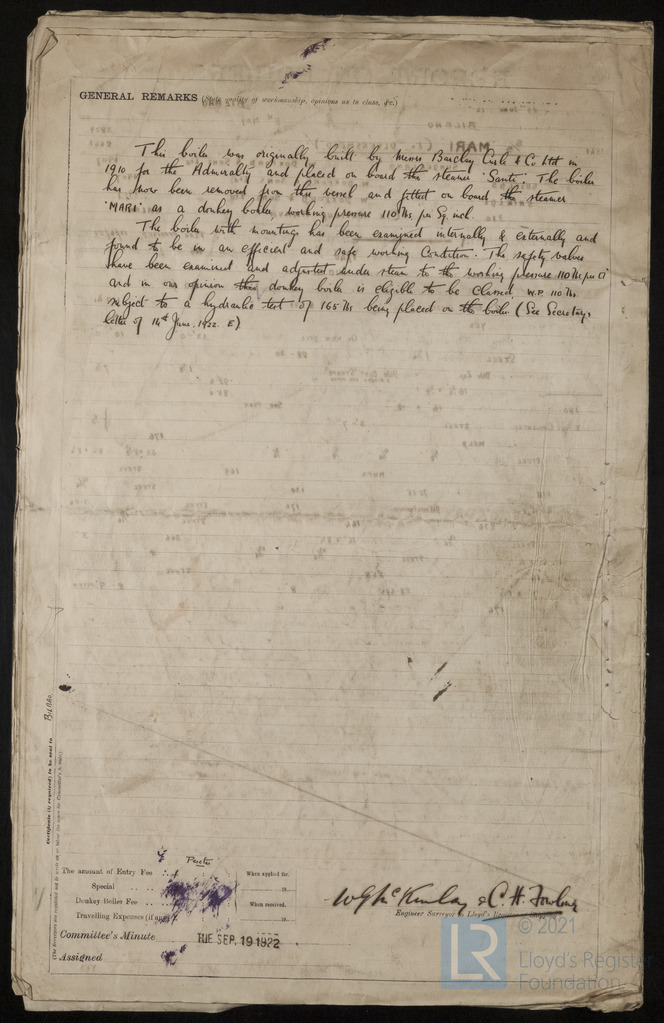 GENERAL REMARKS (State quality of workmanship, opinions as to class, &c.)
This boiler was originally built by Messrs Barclay Curle & Co. Ltd in
1910 for the Admiralty and placed on board the steamer "Santi". The boiler
has now been removed from this vessel and fitted on board the steamer
"MARI" as a donkey boiler, working pressure 110 lbs per Sq inch.
The boiler with mountings has been examined internally & externally and
found to be in an efficient and safe working condition. The safety valves
have been examined and adjusted under steam to the working pressure 110 lbs per □"
and in our opinion this donkey boiler is eligible to be classed W.P. 110 lbs
subject to a hydraulic test of 165 lbs being placed on the boiler (See Secretary's
letter of 14th June. 1922. E)
Certificate (if required) to be sent to Bilbao.
The amount of Entry Fee
Special
Donkey Boiler Fee
Travelling Expenses (if any)
When applied for.
19
When received.
19
W G McKinlay & C. H.
Engineer Surveyor to Lloyd's Register
Committee's Minute
TUE. SEP. 19 1922
Assigned
LR
© 2021
Lloyd's Register
Foundation